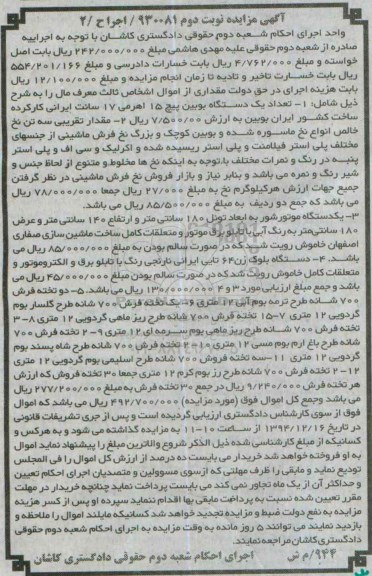 آگهی مزایده نوبت دوم ۹۳۰۰۸۱ / اجراح /۲
واحد اجرای احکام شعبه دوم حقوقی دادگستری کاشان با توجه به اجراییه
صادره از شعبه دوم حقوقی علیه مهدی هاشمی مبلغ ۲۴۲/۰۰۰/۰۰۰ ریال بابت اصل
خواسته و مبلغ ۴/۷۶۲/۰۰۰ ریال بابت خسارات دادرسی و مبلغ ۵۵۴/۲۰۱/۱۶۶
ریال بابت خسارت تاخیر و تادیه تا زمان انجام مزایده و مبلغ ۱۲/۱۰۰/۰۰۰ ریال
بابت هزینه اجرای در حق دولت مقداری از اموال اشخاص ثالث معرف مال را به شرح
ذیل شامل: ۱- تعداد یک دستگاه بوبین پیچ ۱۵ اهرمی ۱۷ سانت ایرانی کارکرده
ساخت کشور ایران بوبین به ارزش ۷/۵۰۰/۰۰۰ ریال ۲- مقدار تقریبی سه تن نخ
خالص انواع نخ ماسوره شده و بوبین کوچک و بزرگ نخ فرش ماشینی از جنسهای
مختلف پلی استر فیلامنت و پلی استر ریسیده شده و اکرلیک و سی اف و پلی استر
پنبه در رنگ و نمرات مختلف با توجه به اینکه نخ ها مخلوط و متنوع از لحاظ جنس و
شیر رنگ و نمره می باشد و بنابر نیاز و بازار فروش نخ فرش ماشینی در نظر گرفتن
جمیع جهات ارزش هرکیلوگرم نخ به مبلغ ۲۷/۰۰۰ ریال جمعا ۷۸/۰۰۰/۰۰۰ ریال
می باشد که جمع دو ردیف به مبلغ ۸۵/۵۰۰/۰۰۰ ریال می باشد.
۳- یکدستگاه موتورشور به ابعاد تونل ۱۸۰ سانتی متر و ارتفاع ۱۴۰ سانتی متر و عرض
۱۸۰ سانتی متر به رنگ آبی با تابلو برق موتور و متعلقات کامل ساخت ماشین سازی صفاری
اصفهان خاموش رویت شد که در صورت سالم بودن به مبلغ ۸۵/۰۰۰/۰۰۰ ریال می
باشد. ۴- دستگاه بلوک زن ۶۴ تایی ایرانی نارنجی رنگ با تابلو برق و الکتروموتور و
متعلقات کامل خاموش رویت شد که در صورت سالم بودن مبلغ ۴۵/۰۰۰/۰۰۰ ریال می
باشد و جمع مبلغ ارزیابی مورد ۳ و ۴ ۱۳۰/۰۰۰/۰۰۰ ریال می باشد. ۵- دو تخته فرش
۷۰۰ شانه طرح ترمه بوم آبی ۱۲ متری ۶- یک تخته فرش ۷۰۰ شانه طرح گلسار بوم
گردویی ۱۲ متری ۷- ۱۵ تخته فرش ۷۰۰ شانه طرح ریز ماهی گردویی ۱۲ متری ۸- ۳
تخته فرش ۷۰۰ شانه طرح ریز ماهی بوم سرمه ای ۱۲ متری ۹- ۲ تخته فرش ۷۰۰
شانه طرح باغ ارم بوم مسی ۱۲ متری ۱۰- ۲ تخته فرش ۷۰۰ شانه طرح شاه پسند بوم
گردویی ۱۲ متری ۱۱- سه تخته فروش ۷۰۰ شانه طرح اسلیمی بوم گردویی ۱۲ متری
۱۲- ۲ تخته فرش ۷۰۰ شانه طرح رز بوم کرم ۱۲ متری جمعا ۳۰ تخته فروش که ارزش
هر تخته فرش ۹/۲۴۰/۰۰۰ ریال در جمع ۳۰ تخته فرش به مبلغ ۲۷۷/۲۰۰/۰۰۰ ریال
می باشد وجمع کل اموال فوق (مورد مزایده) ۴۹۲/۷۰۰/۰۰۰ ریال می باشد که اموال
فوق از سوی کارشناس دادگستری ارزیابی گردیده است و پس از جری تشریفات قانونی
در تاریخ ۱۳۹۴/۱۲/۱۶ از ساعت ۱۰-۱۱ به مزایده گذاشته می شود و به هرکس و
کسانیکه از مبلغ کارشناسی شده ذیل الذکر شروع والاترین مبلغ را پیشنهاد نماید اموال
به او فروخته خواهد شد خریدار می بایست ده درصد از ارزش کل اموال را فی المجلس
تودیع نماید و مابقی را ظرف مهلتی که ازسوی مسوولین و متصدیان اجرای احکام تعیین
و حداکثر آن از یک ماه تجاوز نمی کند می بایست پرداخت نماید چنانچه خریدار در مهلت
مقرر تعیین شده نسبت به پرداخت مابقی بها اقدام ننماید سپرده او پس از کسر هزینه
مزایده به نفع دولت ضبط و مزایده تجدید خواهد شد کسانیکه مایلند اموال را ملاحظه و
بازدید نمایند می توانند ۵ روز مانده به وقت مزایده به اجرای احکام شعبه دوم حقوقی
دادگستری کاشان مراجعه نمایند.
۹۴۴/م ش اجرای احکام شعبه دوم حقوقی دادگستری کاشان